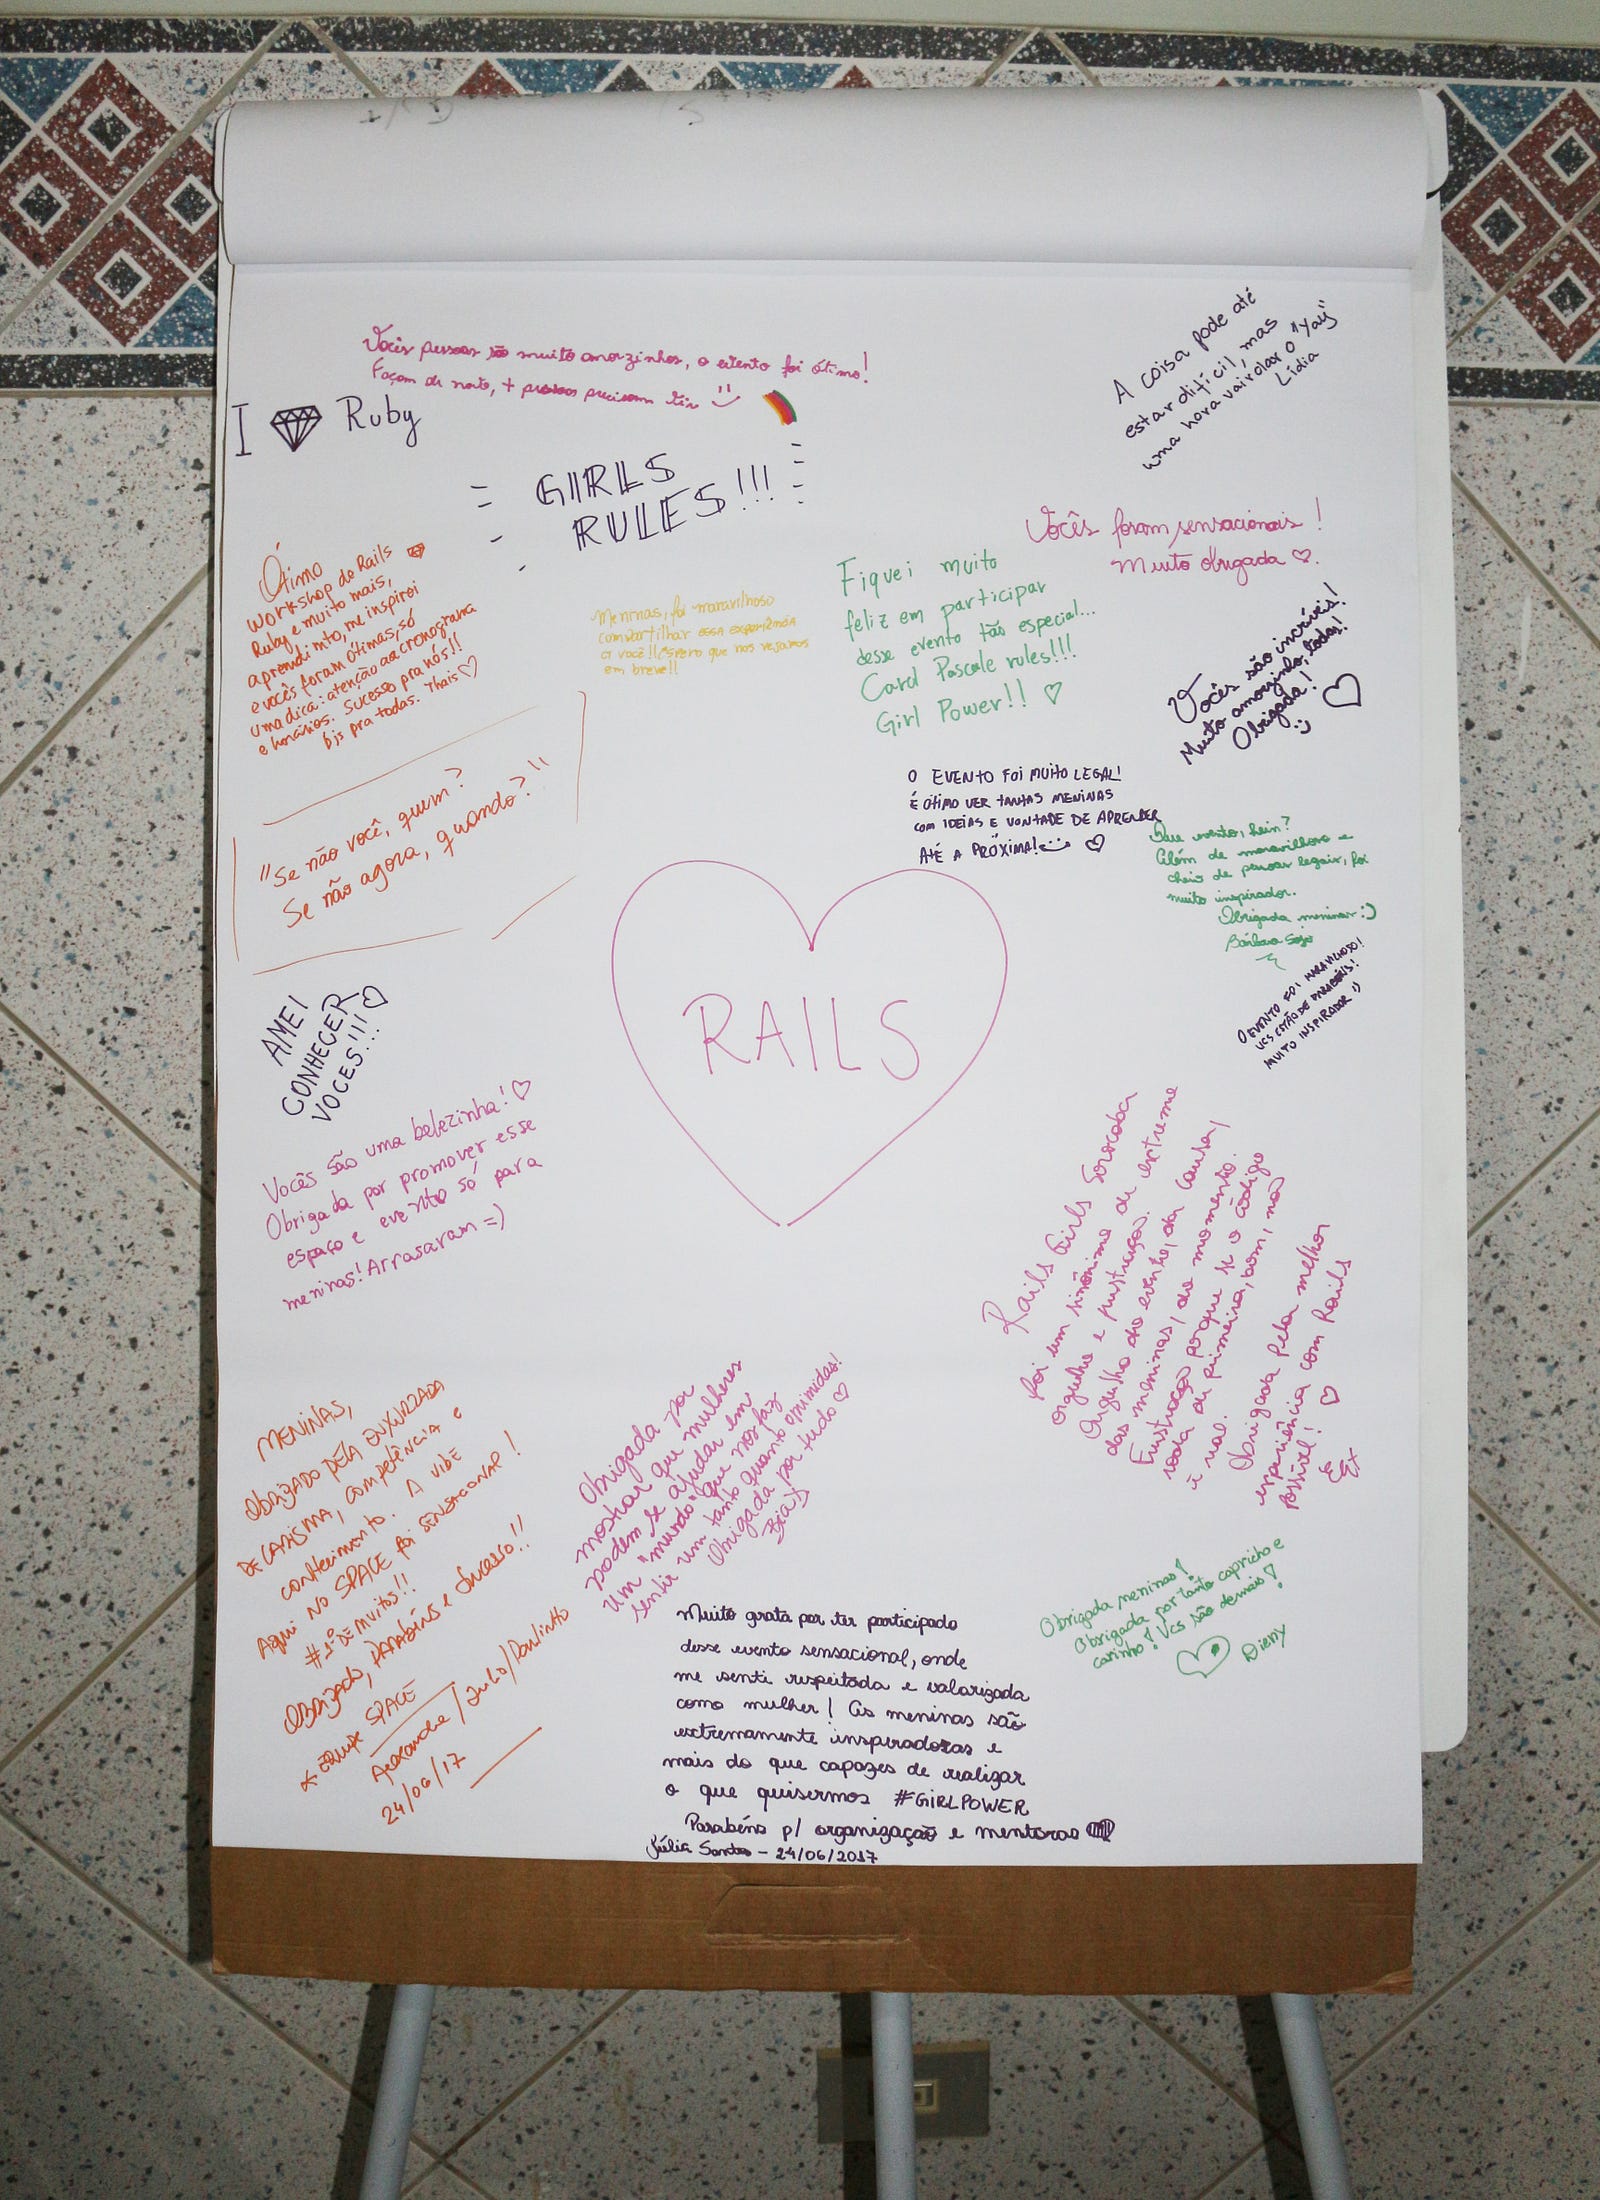 Vocês pessoas são muito amorzinhos, o evento foi ótimo!
Façam de novo, + pessoas precisam vir
I Ruby
GIRLS
RULES!!!
A coisa pode até
estar difícil, mas
uma hora vai rolar o "Yay"
Lídia
Vocês foram sensacionais!
Muito obrigada
Ótimo
workshop de Rails
Ruby e muito mais,
aprendi mto, me inspirei
e vocês foram ótimas, só
uma dica: atenção ao cronograma
e horários. Sucesso pra nós!!
bjs pra todas. Thais
Meninas, foi maravilhoso
compartilhar essa experiência
c/ você!! Espero que nos vejamos
em breve!!
Fiquei muito
feliz em participar
desse evento tão especial...
Card Pascale rules!!!
Girl Power!!
Vocês são incríveis!
Muito amorzinho, todas!
Obrigada!
:)
O EVENTO FOI MUITO LEGAL!
É ÓTIMO VER TANTAS MENINAS
COM IDEIAS E VONTADE DE APRENDER
ATÉ A PRÓXIMA!
"Se não você, quem?
Se não agora, quando?"
Que evento, hein?
Além de maravilhoso e
cheio de pessoas legais, foi
muito inspirador.
Obrigada meninas :)
Bárbara
O EVENTO FOI MARAVILHOSO!
VCS ESTÃO DE PARABÉNS!
MUITO INSPIRADOR :)
RAILS
AMEI
CONHECER
VOCES!!!
Vocês são uma belezinha!
Obrigada por promover esse
espaço e evento só para
meninas! Arrasaram =)
Rails Girls Sorocaba
foi um sinônimo de extreme
orgulho e frustração.
Orgulho do evento, da causa,
das meninas, do momento.
Frustração porque se o código
roda de primeira, bom, não
é real.
Obrigada pela melhor
experiência com Rails
possível!
MENINAS,
OBRIGADO PELA ENXURZADA
DE CARISMA, COMPETÊNCIA e
conhecimento. A VIBE
AQUI NO SPACE foi SENSACIONAL!
#1º DE MUITOS!!
OBRIGADO, PARABÉNS e Sucesso!!
EQUIPE SPACE
Alexandre/Julio/Paulinho
24/06/17
Obrigada por
mostrar que mulheres
podem se ajudar em
um "mundo" que nos faz
sentir um tanto quanto oprimidas!
Obrigada por tudo
Bia
Obrigada meninas!
Obrigada por tanto capricho e
carinho! Vcs são demais!
Dieny
Muito grata por ter participado
desse evento sensacional, onde
me senti respeitada e valorizada
como mulher! As meninas são
extremamente inspiradoras e
mais do que capazes de realizar
o que quisermos #GIRLPOWER
Parabéns p/ organização e mentoras
Júlia Santos - 24/06/2017